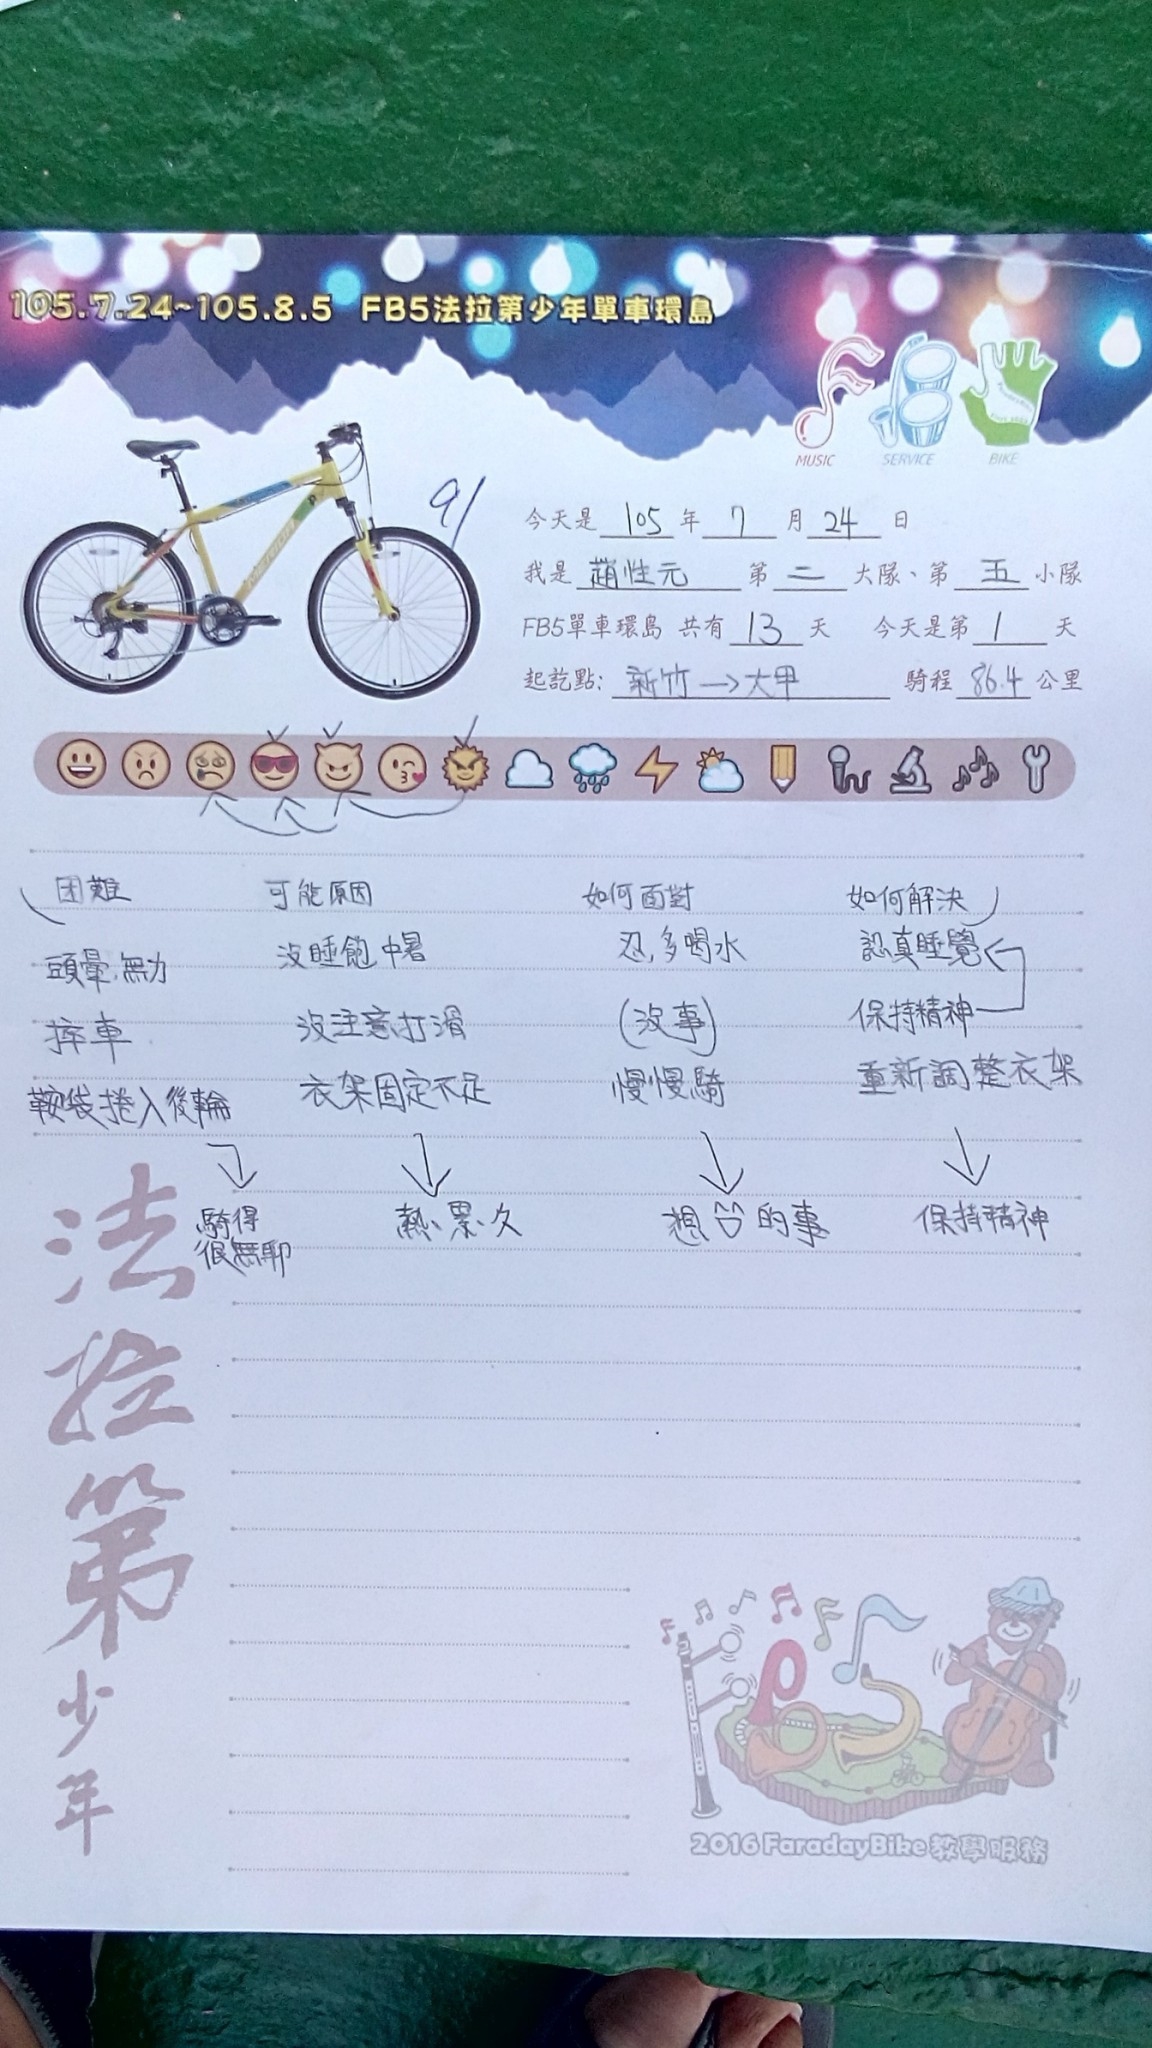 105.7.24~105.8.5 FB5法拉第少年單車環島
MUSIC SERVICE BIKE
91
今天是 105 年 7 月 24 日
我是 趙性元 第 二 大隊、第 五 小隊
FB5單車環島 共有 13 天 今天是第 1 天
起訖點: 新竹→大甲 騎程 86.4 公里
困難 可能原因 如何面對 如何解決
頭暈、無力 沒睡飽 中暑 忍,多喝水 認真睡覺
摔車 沒注意打滑 (沒事) 保持精神
鞍袋捲入後輪 衣架固定不足 慢慢騎 重新調整衣架
騎得很無聊 熱、累、久 想 的事 保持精神
法拉第少年
2016 FaradayBike 教學服務